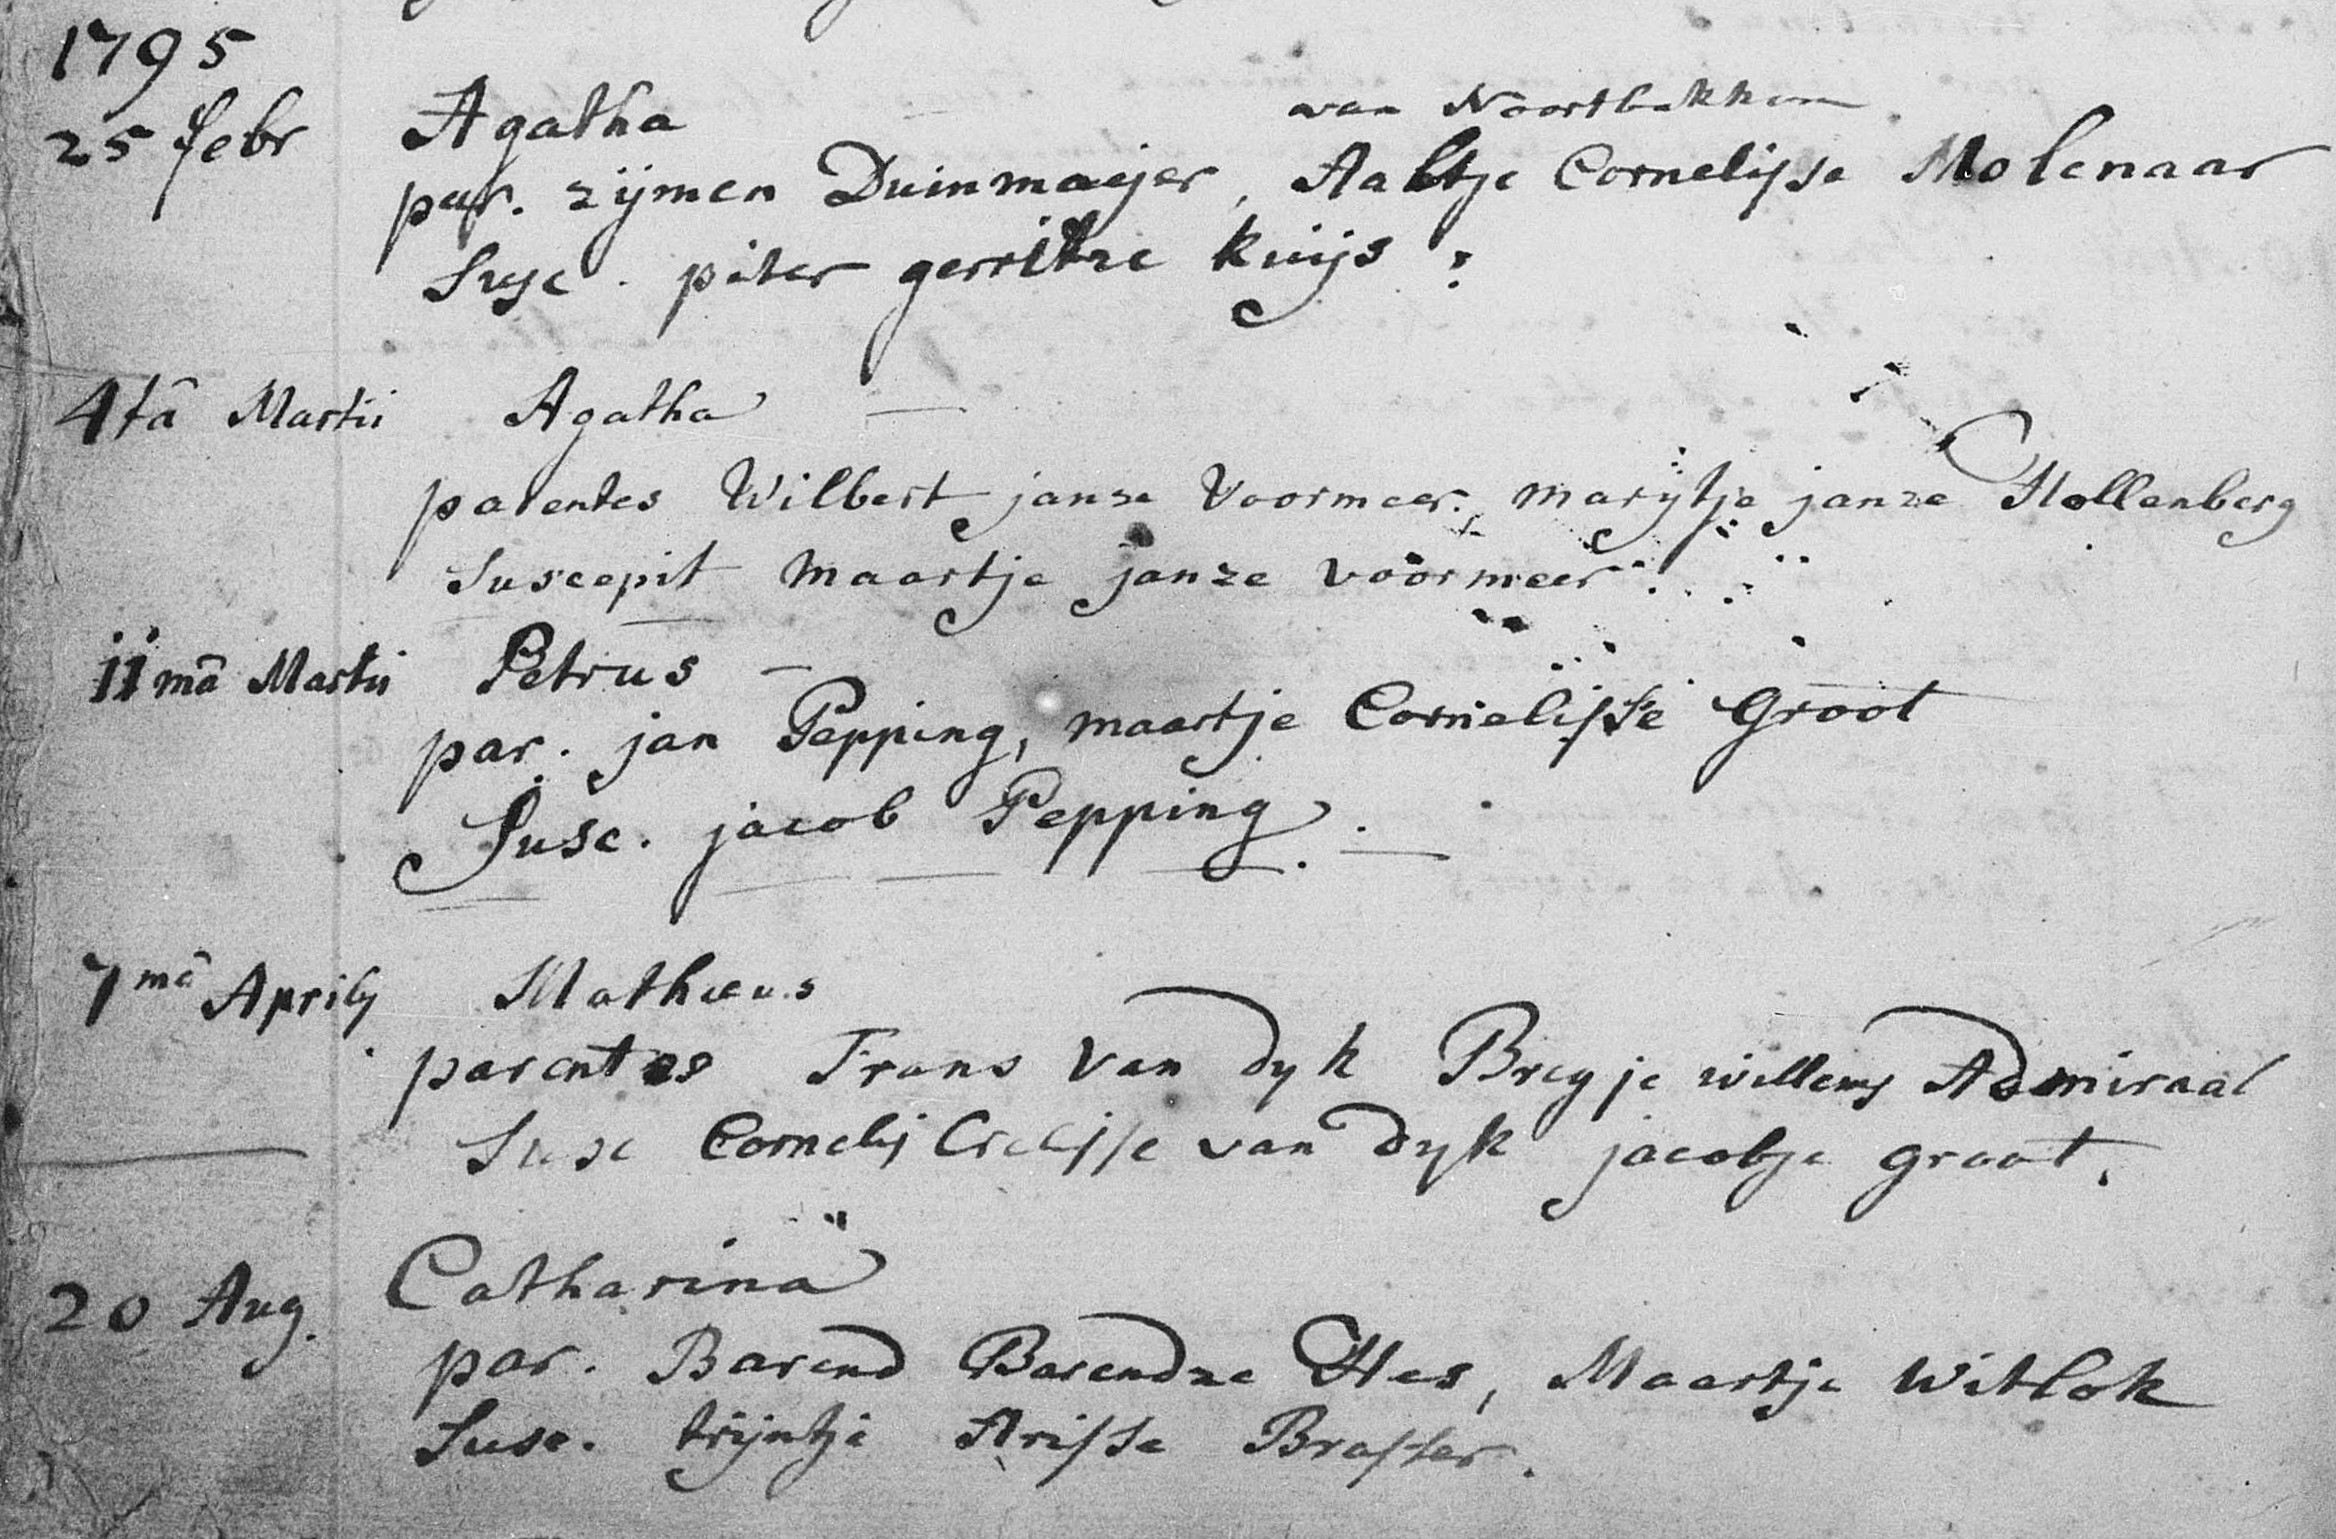 1795
25 febr Agatha van Noortbakkum
par. zijmen Duinmaijer, Aaltje Cornelisse Molenaar
Susc. piter gerritze kuijs
4tâ Martii Agatha
parentes Wilbert janse Voormeer, marijtje janze Hollenberg
Suscepit maartje janze voormeer
11mâ Martii Petrus
par. jan Pepping, maartje Cornelisse Groot
Susc. jacob Pepping.
7mâ Aprilij Matheus
parentes Frans Van dyk Bregje willems Admiraal
Susc Cornelis van dyk jacobje groot.
20 Aug. Catharina
par. Barend Barendze Hes, Maartje Witlok
Susc. trijntje Arisse Brasser.